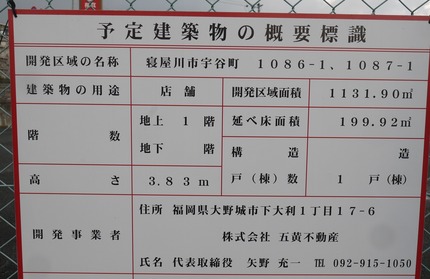 予定建築物の概要標識
開発区域の名称 寝屋川市宇谷町 1086-1、1087-1
建築物の用途 店舗 開発区域面積 1131.90㎡
階数 地上 1 階 延べ床面積 199.92㎡
地下 階 構造 造
高さ 3.83m 戸(棟)数 1 戸(棟)
開発事業者 住所 福岡県大野城市下大利1丁目17-6
株式会社 五黄不動産
氏名 代表取締役 矢野 充一 TEL 092-915-1050